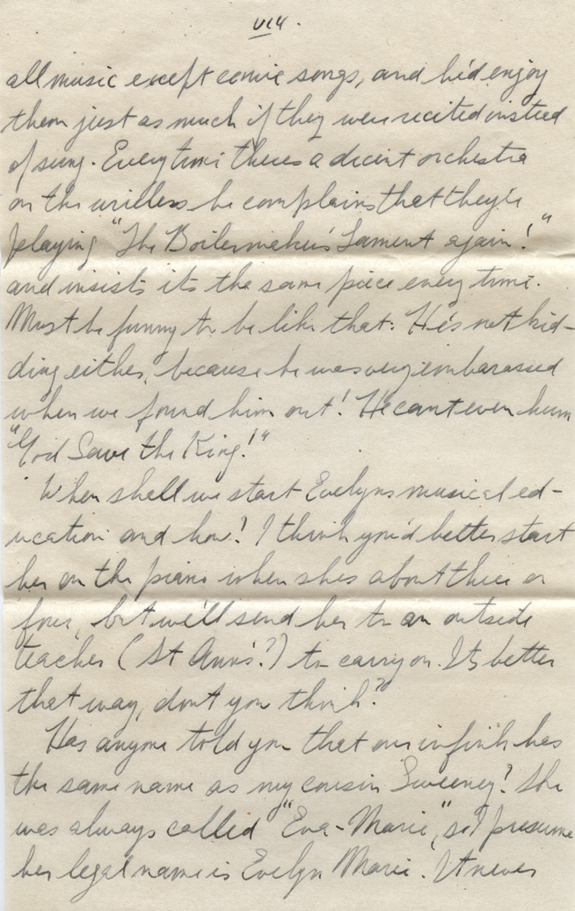 VIII.
all music except comic songs, and he'd enjoy
them just as much if they were recited instead
of sung. Every time theres a decent orchestra
on the wireless he complains that they're
playing "The Boilermakers' Lament again!"
and insists its the same piece every time.
Must be funny to be like that. He's not kid-
ding either, because he was very embarassed
when we found him out! He cant even hum
"God Save the King!"
When shall we start Evelyns musical ed-
ucation and how? I think you'd better start
her on the piano when shes about three or
four, but we'll send her to an outside
teacher (St Anns?) to carry on. Its better
that way, dont you think?
Has anyone told you that our infink has
the same name as my cousin Sweeney? She
was always called "Eva-Marie," so I presume
her legal name is Evelyn Marie. It never